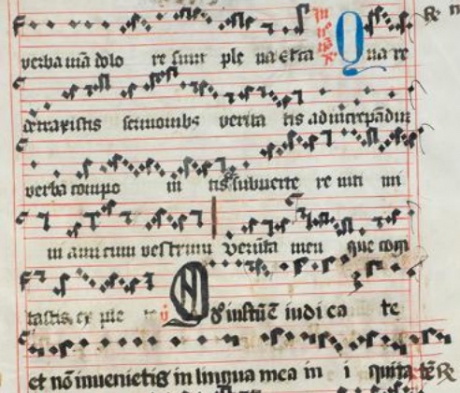 verba mea dolo re sunt ple na et ca Qua re
detraxistis sermonibus verita tis ad increpandum
verba compo ni tis subverte re niti mi
ni amicum vestrum verūta men que cogi
tastis ex ple te Qd iustū ē iudi ca te
et nō invenietis in lingua mea in i quitatē